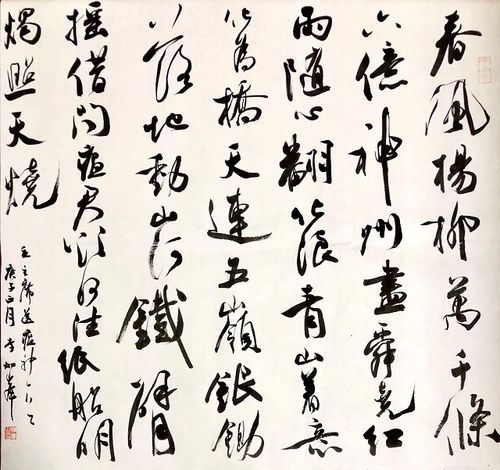 春風楊柳萬千條
六億神州盡舜堯紅
雨隨心翻作浪青山着意
化為橋天連五嶺銀鋤
落地動山河鐵臂
搖借問瘟君欲何往紙船明
燭照天燒
毛主席送瘟神之二
庚子正月 李